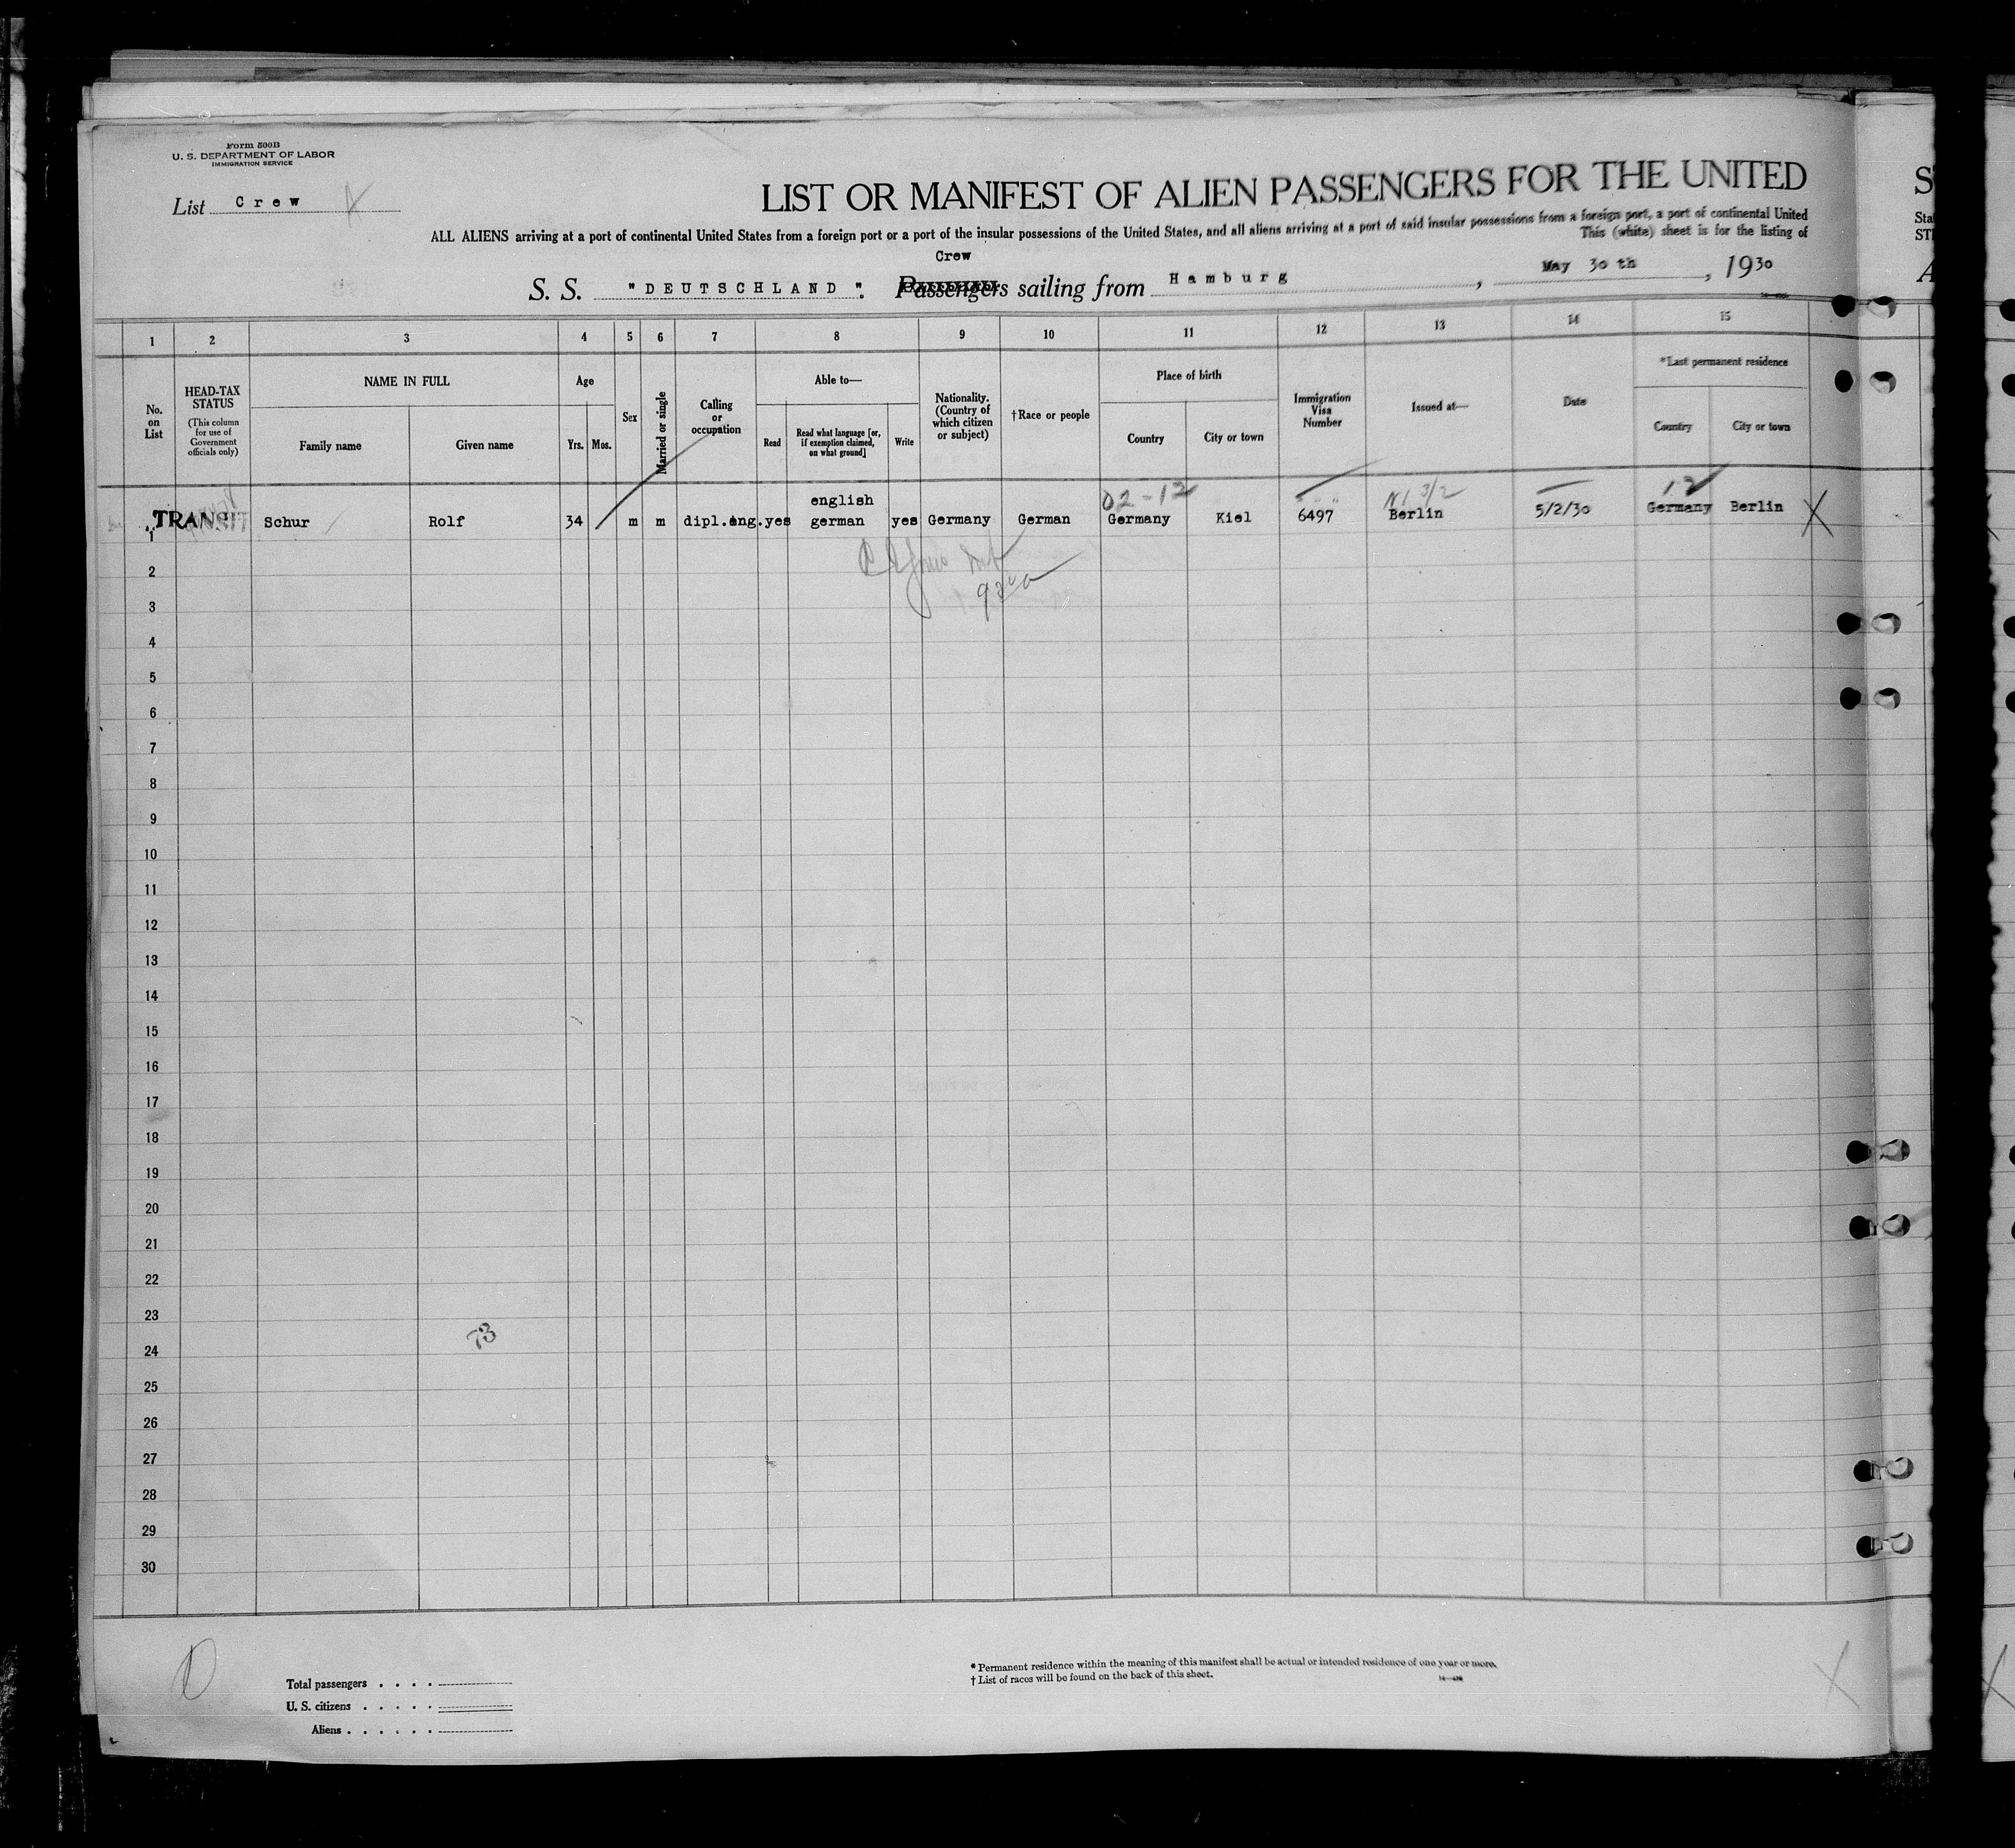 Form 500B
U. S. DEPARTMENT OF LABOR
IMMIGRATION SERVICE
List Crew
LIST OR MANIFEST OF ALIEN PASSENGERS FOR THE UNITED
ALL ALIENS arriving at a port of continental United States from a foreign port or a port of the insular possessions of the United States, and all aliens arriving at a port of said insular possessions from a foreign port, a port of continental United
This (white) sheet is for the listing of
Crew
S. S. "DEUTSCHLAND". Passengers sailing from Hamburg, May 30th, 1930
1 2 3 4 5 6 7 8 9 10 11 12 13 14 15
No. on List
HEAD-TAX STATUS
(This column for use of Government officials only)
NAME IN FULL
Family name
Given name
Age
Yrs.
Mos.
Sex
Married or single
Calling or occupation
Able to—
Read
Read what language [or, if exemption claimed, on what ground]
Write
Nationality. (Country of which citizen or subject)
†Race or people
Place of birth
Country
City or town
Immigration Visa Number
Issued at—
Date
*Last permanent residence
Country
City or town
english
02-12
N1 3/2
12
TRANSIT Schur Rolf 34 m m dipl.ing. yes german yes Germany German Germany Kiel 6497 Berlin 5/2/30 Germany Berlin X
1
2
3
4
5
6
7
8
9
10
11
12
13
14
15
16
17
18
19
20
21
22
23
73
24
25
26
27
28
29
30
* Permanent residence within the meaning of this manifest shall be actual or intended residence of one year or more.
† List of races will be found on the back of this sheet.
Total passengers . . . .
U. S. citizens . . . . .
Aliens . . . . . .